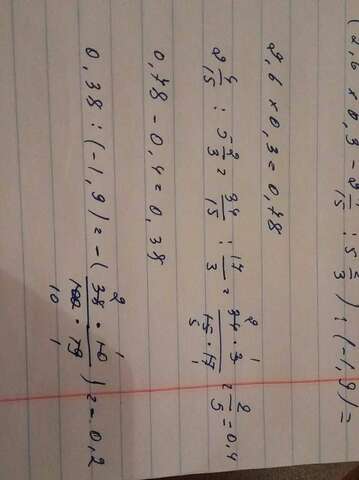 (2,6 × 0,3 - 2 4/15 : 5 2/3) : (-1,9) =
2,6 × 0,3 = 0,78
2 4/15 : 5 2/3 = 34/15 : 17/3 = 34 · 3/15 · 17 2 1 5 1 = 2/5 = 0,4
0,78 - 0,4 = 0,38
0,38 : (-1,9) = -(38 · 10/100 · 19 2 1 10 1) = -0,2